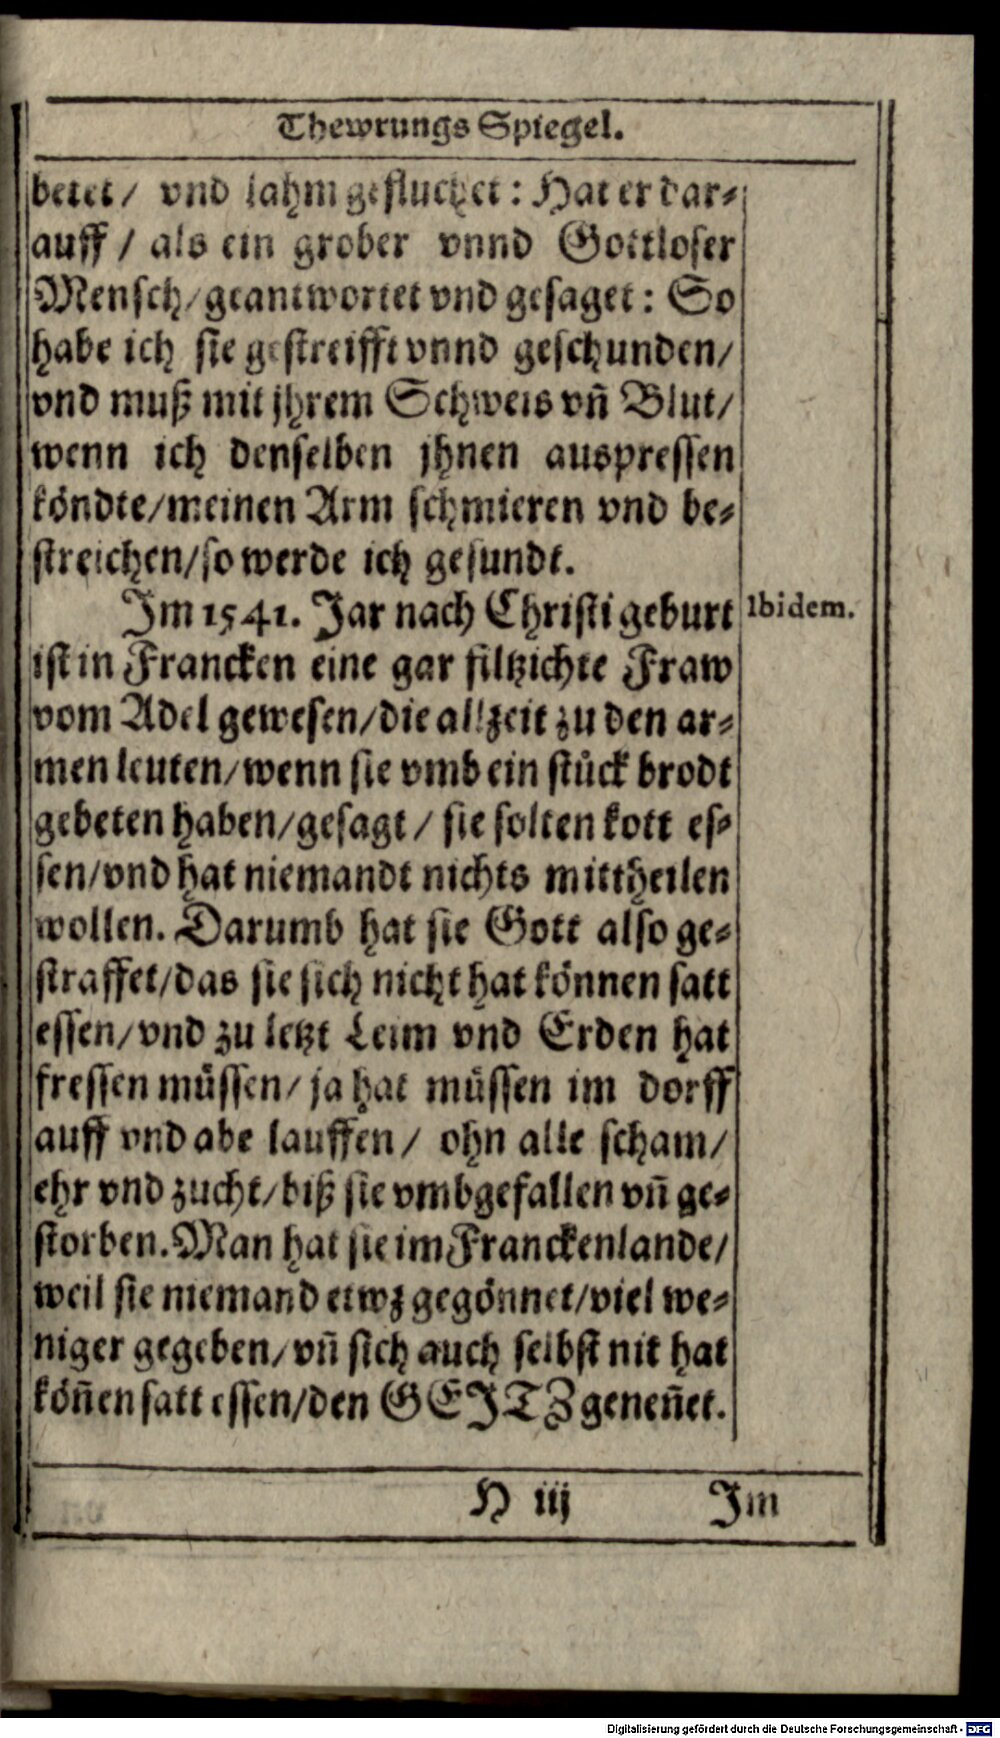 Thewrungs Spiegel.
betet/ vnd lahm gefluchet: Hat er dar-
auff/ als ein grober vnnd Gottloser
Mensch/geantwortet vnd gesaget: So
habe ich sie gestreifft vnnd geschunden/
vnd muß mit jhrem Schweis vn̄ Blut/
wenn ich denselben jhnen auspressen
köndte/meinen Arm schmieren vnd be-
streichen/so werde ich gesundt.
Im 1541. Jar nach Christi geburt
Ibidem.
ist in Francken eine gar filtzichte Fraw
vom Adel gewesen/die allzeit zu den ar-
men leuten/wenn sie vmb ein stück brodt
gebeten haben/gesagt/ sie solten kott es-
sen/vnd hat niemandt nichts mittheilen
wollen. Darumb hat sie Gott also ge-
straffet/das sie sich nicht hat können satt
essen/vnd zu letzt Leim vnd Erden hat
fressen müssen/ ja hat müssen im dorff
auff vnd abe lauffen/ ohn alle scham/
ehr vnd zucht/biß sie vmbgefallen vn̄ ge-
storben. Man hat sie im Franckenlande/
weil sie niemand etwz gegönnet/viel we-
niger gegeben/vn̄ sich auch selbst nit hat
kön̄en satt essen/den GEITZ genen̄et.
H iij Im
Digitalisierung gefördert durch die Deutsche Forschungsgemeinschaft - DFG